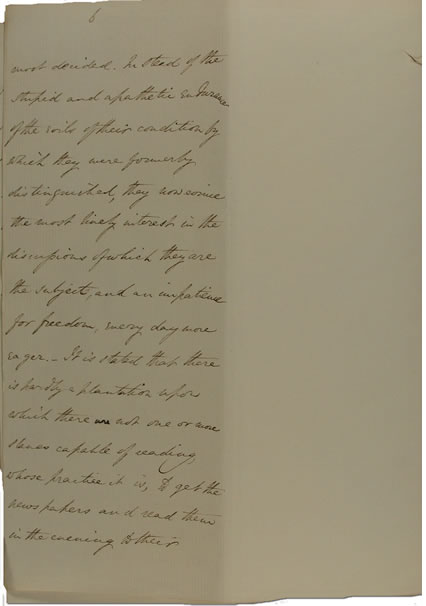 6
most decided. Instead of the
stupid and apathetic endurance
of the evils of their condition by
which they were formerly
distinguished, they now evince
the most lively interest in the
discussions of which they are
the subject, and an impatience
for freedom, every day more
eager. – It is stated that there
is hardly a plantation upon
which there are not one or more
slaves capable of reading,
whose practice it is, to get the
newspapers and read them
in the evening to their